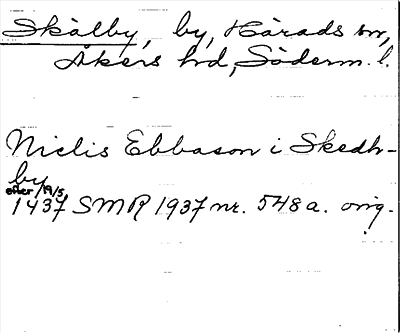 Skälby, by, Härads sn,
Åkers hd, Söderm. l.
Niclis Ebbason i Skedh-
by
efter 19/5
1437 SMR 1937 nr. 548a. orig.